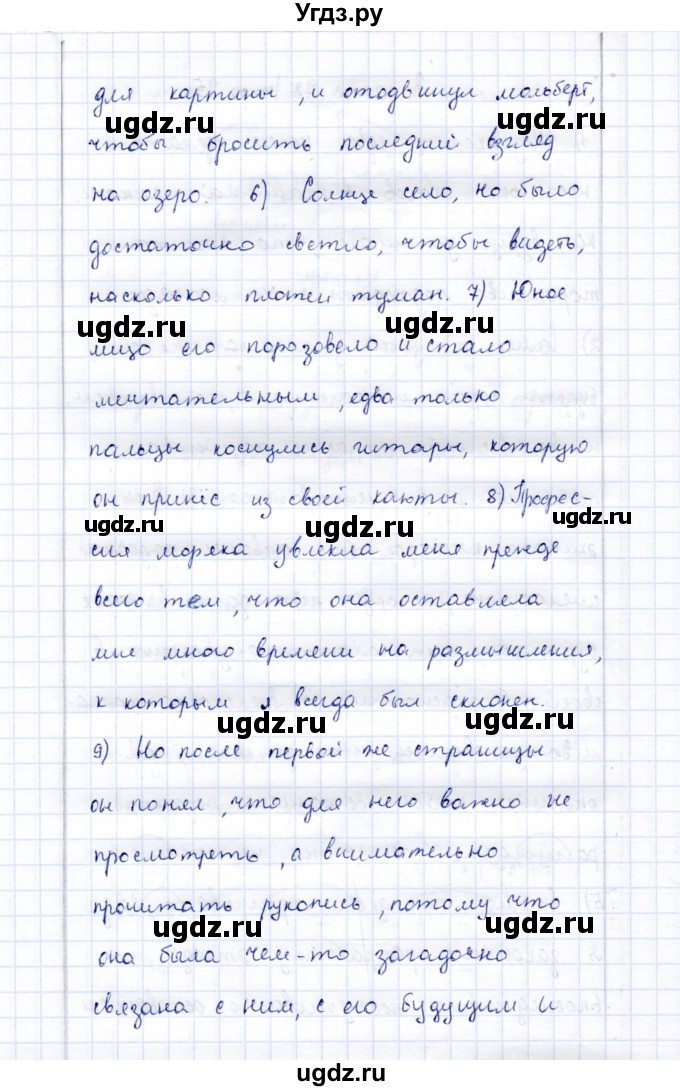 Угдз.ру
для картины, и отодвинул мольберт,
ugdz.ru ugdz.ru
чтобы бросить последний взгляд
на озеро. 6) Солнце село, но было
ugdz.ru ugdz.ru
достаточно светло, чтобы видеть,
насколько плотен туман. 7) Юное
ugdz.ru ugdz.ru
лицо его порозовело и стало
мечтательным, едва только
пальцы коснулись гитары, которую
он принёс из своей каюты. 8) Профес-
ugdz.ru ugdz.ru ugdz.ru
сия моряка увлекла меня прежде
всего тем, что она оставляла
ugdz.ru ugdz.ru
мне много времени на размышления,
к которым я всегда был склонен.
ugdz.ru ugdz.ru
9) Но после первой же страницы
он понял, что для него важно не
ugdz.ru ugdz.ru
просмотреть, а внимательно
прочитать рукопись, потому что
ugdz.ru ugdz.ru
она была чем-то загадочно
связана с ним, с его будущим и
ugdz.ru